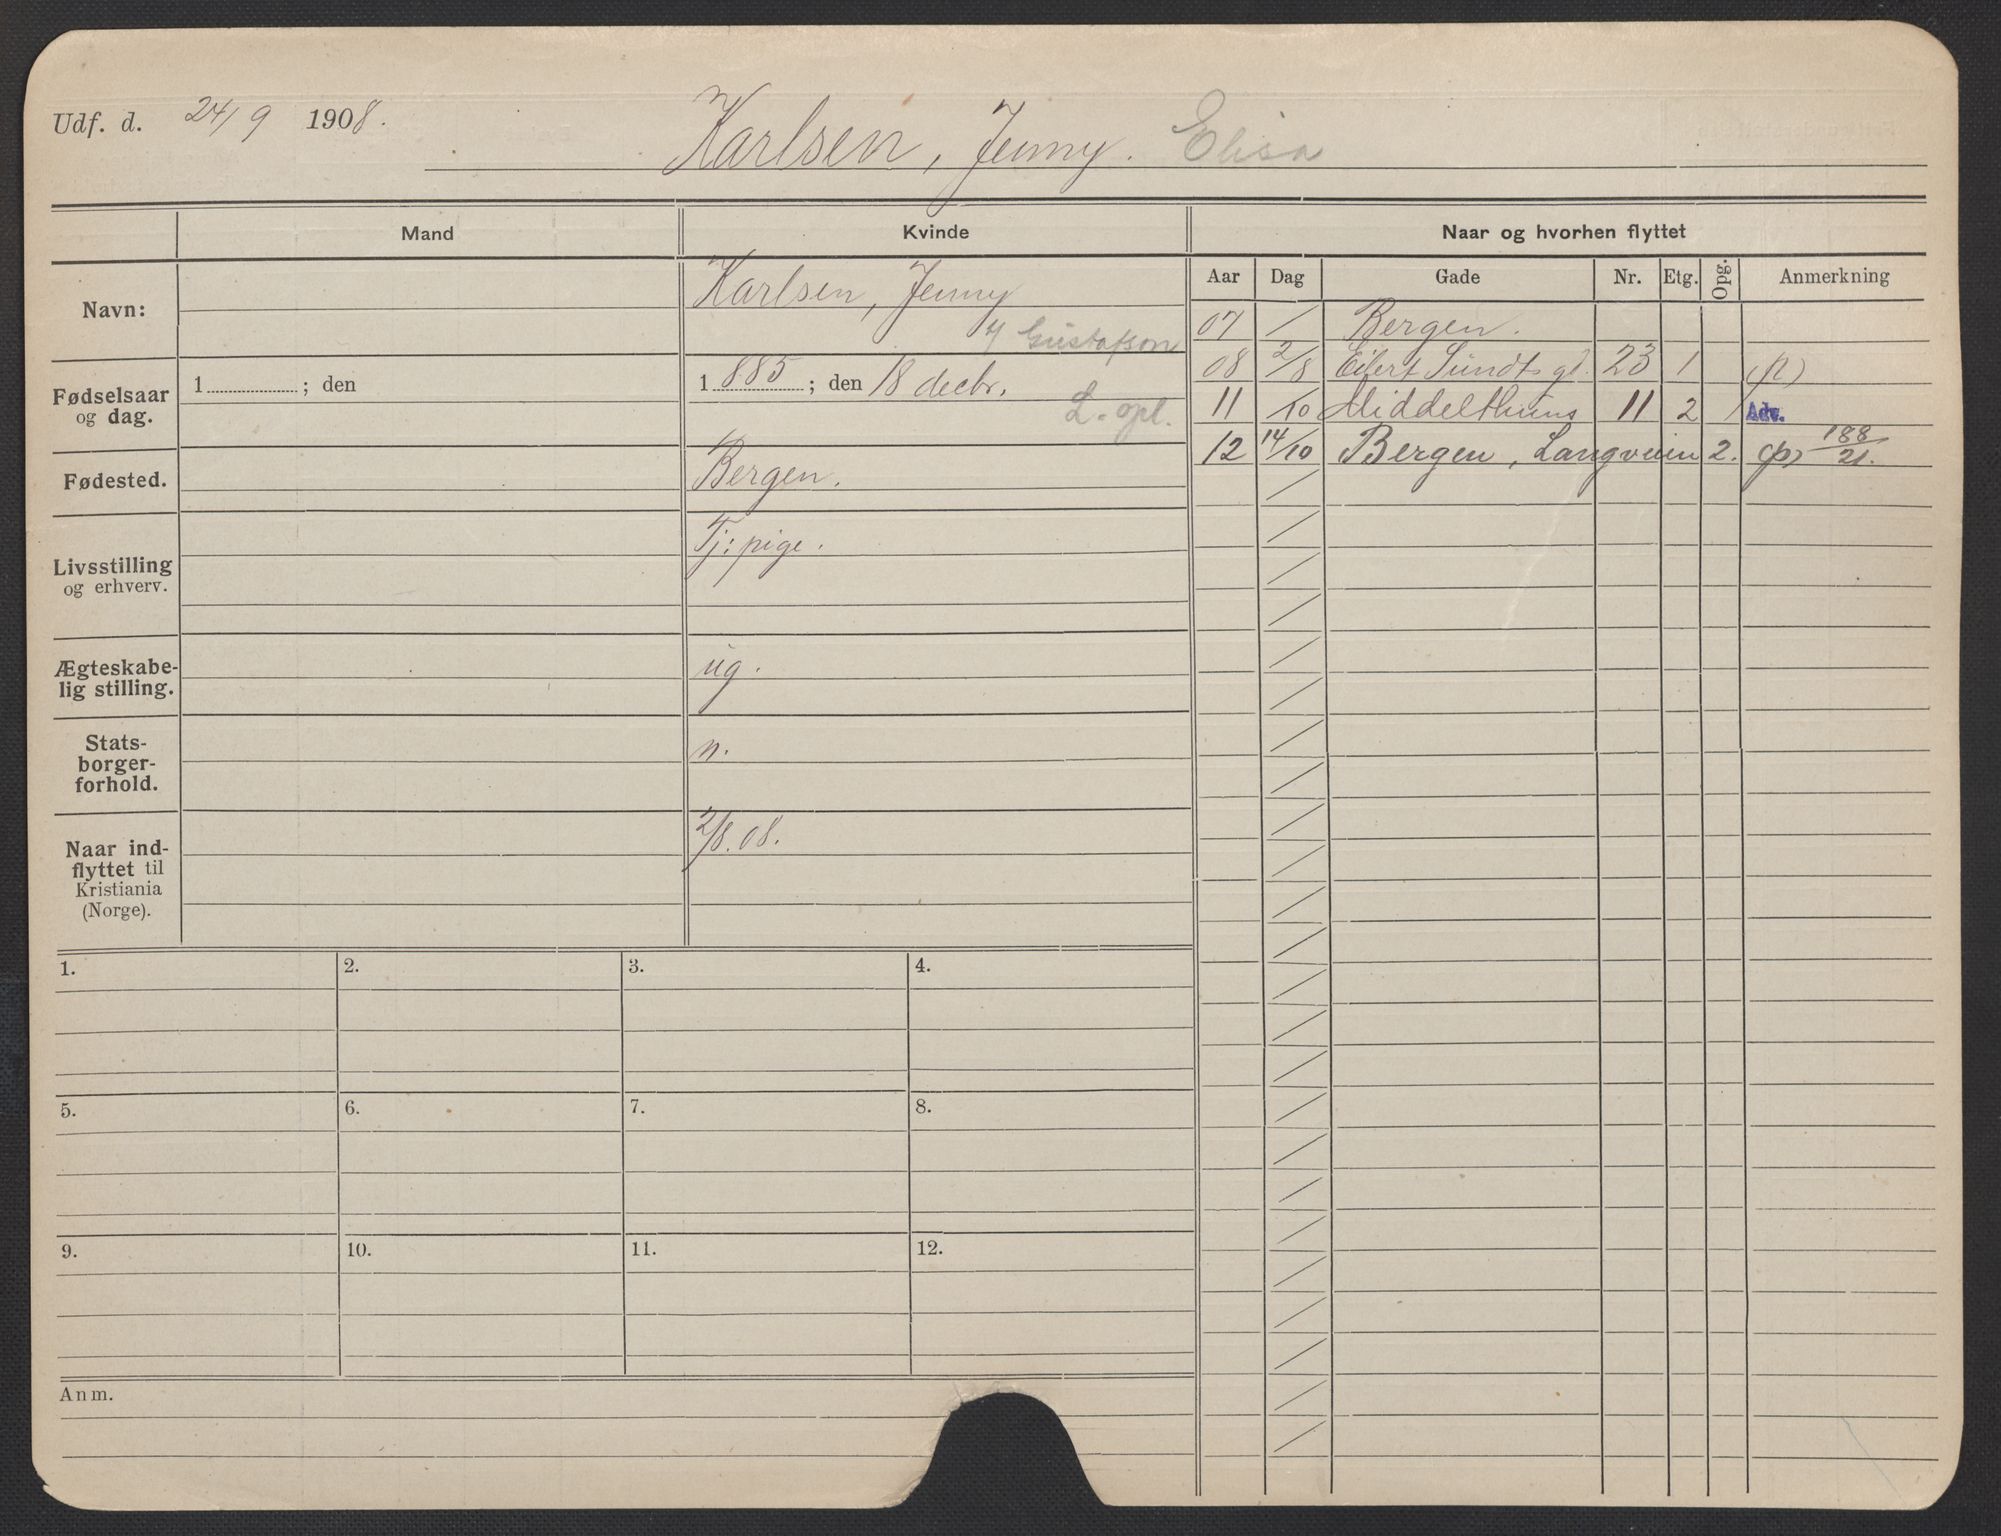 Udf. d. 24/9 1908.
Karlsen, Jenny. Elisa
Mand
Kvinde
Naar og hvorhen flyttet
Aar Dag Gade Nr. Etg. Opg. Anmerkning
Navn:
Karlsen, Jenny
Gustafson
Fødselsaar og dag.
1 ; den
1 885 ; den 18 decbr.
L. opl.
Fødested.
Bergen.
Livsstilling og erhverv.
Tj: pige.
Ægteskabe-
lig stilling.
ug.
Stats-
borger-
forhold.
n.
Naar ind-
flyttet til
Kristiania
(Norge).
2/8. 08.
07 / Bergen.
08 2/8 Eilert Sundts gd. 23 1 (p)
11 /10 Middelthuns 11 2 / Adv.
12 14/10 Bergen, Langveien 2. (p) 188/21.
1. 2. 3. 4.
5. 6. 7. 8.
9. 10. 11. 12.
Anm.